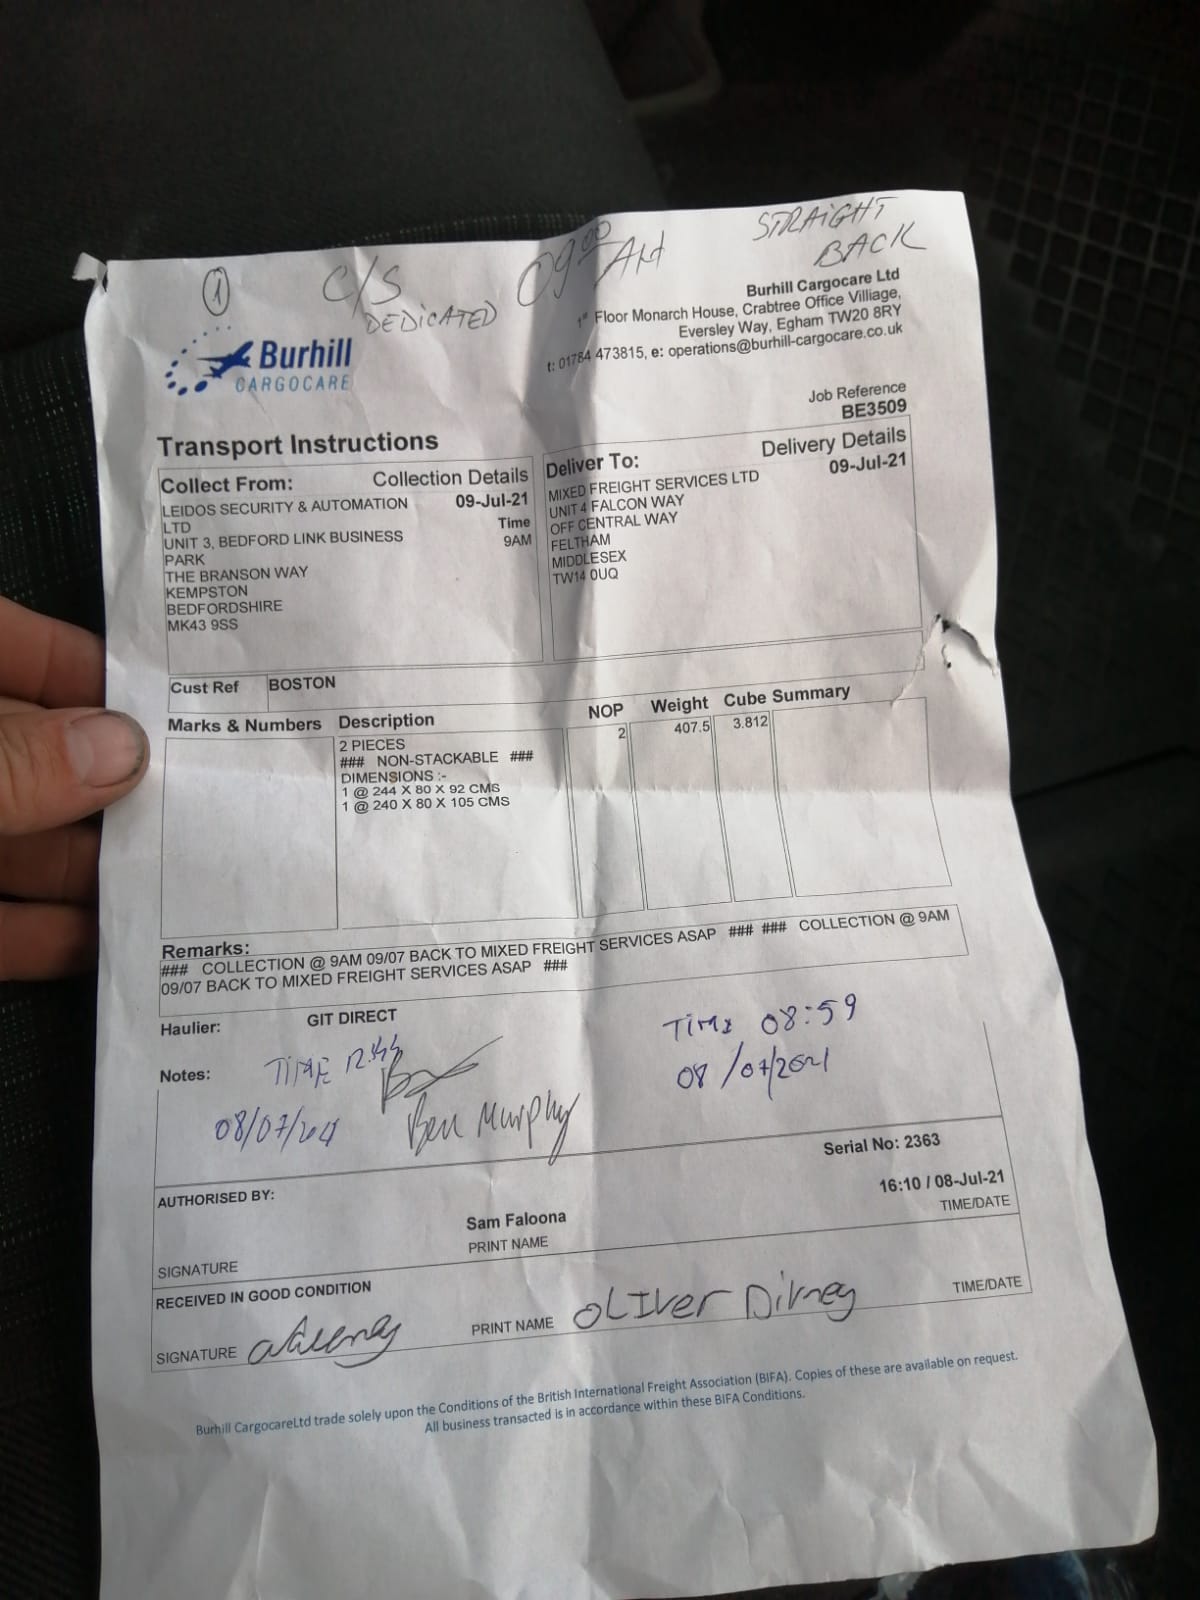 1
C/S
DEDICATED
09:00 AM
STRAIGHT
BACK
Burhill
CARGOCARE
Burhill Cargocare Ltd
1st Floor Monarch House, Crabtree Office Villiage,
Eversley Way, Egham TW20 8RY
t: 01784 473815, e: operations@burhill-cargocare.co.uk
Job Reference
BE3509
Transport Instructions
Collect From: Collection Details
LEIDOS SECURITY & AUTOMATION 09-Jul-21
LTD Time
UNIT 3, BEDFORD LINK BUSINESS 9AM
PARK
THE BRANSON WAY
KEMPSTON
BEDFORDSHIRE
MK43 9SS
Deliver To: Delivery Details
MIXED FREIGHT SERVICES LTD 09-Jul-21
UNIT 4 FALCON WAY
OFF CENTRAL WAY
FELTHAM
MIDDLESEX
TW14 0UQ
Cust Ref BOSTON
Marks & Numbers Description NOP Weight Cube Summary
2 PIECES 2 407.5 3.812
### NON-STACKABLE ###
DIMENSIONS :-
1 @ 244 X 80 X 92 CMS
1 @ 240 X 80 X 105 CMS
Remarks:
### COLLECTION @ 9AM 09/07 BACK TO MIXED FREIGHT SERVICES ASAP ### ### COLLECTION @ 9AM
09/07 BACK TO MIXED FREIGHT SERVICES ASAP ###
Haulier: GIT DIRECT
TIME 08:59
Notes: TIME
08/07/2021
08/07/
Ben Murphy
Serial No: 2363
AUTHORISED BY:
16:10 / 08-Jul-21
Sam Faloona
SIGNATURE PRINT NAME TIME/DATE
RECEIVED IN GOOD CONDITION
SIGNATURE PRINT NAME OLIVER TIME/DATE
Burhill CargocareLtd trade solely upon the Conditions of the British International Freight Association (BIFA). Copies of these are available on request.
All business transacted is in accordance within these BIFA Conditions.